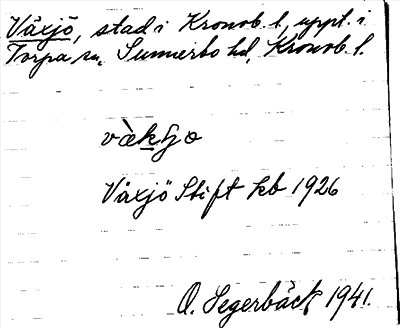 Växjö, stad i Kronob. l., uppt. i
Torpa sn, Sunnerbo hd, Kronob. l.
Växjö Stift hb 1926
O. Segerbäck 1941.